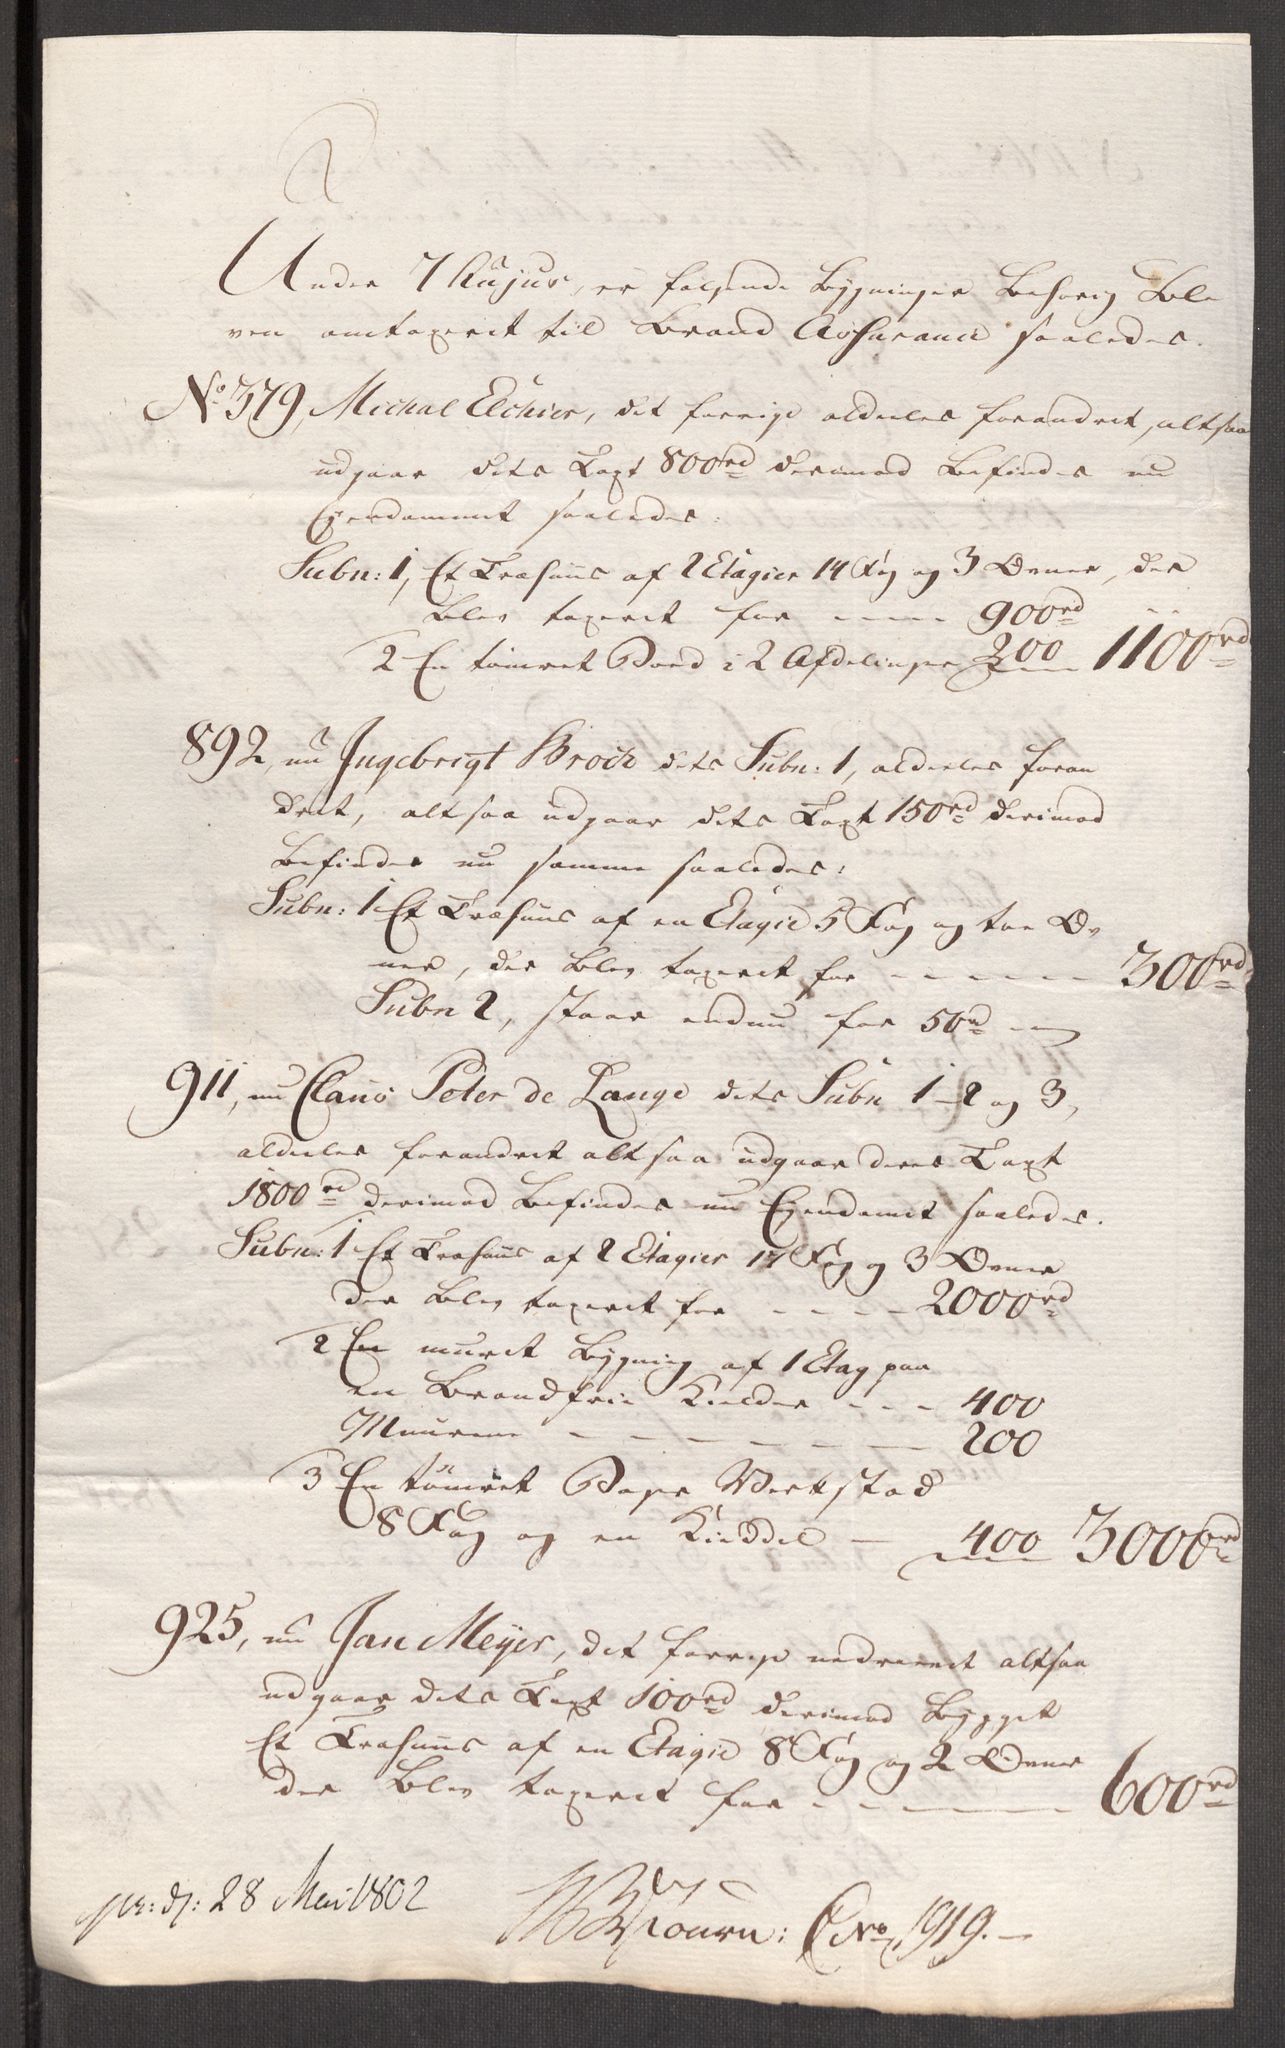 Under 7 Hujus, er følgende Bygninger Behørig Ble
ven omtaxeret til Brand Assurance saaledes.
No. 379, Michal Elchier, det forrige aldeeles forandret, altsaa
udgaar dets Taxt 800rd derimod Befindes nu
Ejendommet saaledes:
Subn: 1, Et Træhuus af 2 Etagier 14 Fag og 3 Ovner, der
Blev taxeret for - - - - 900rd
2 En tømret Boed i 2 Afdelinger 200 1100rd
892, nu Ingebrigt Broch dets Subn: 1, aldeeles foran
dret, altsaa udgaar dets Taxt 150rd derimod
Befindes nu samme saaledes:
Subn: 1 Et Træhuus af en Etagie 5 Fag og toe Ov
ner, der Blev taxeret for - - - - - - 300rd
Subn 2, staar endnu for 50rd
911, nu Claus Peter de Lange dets Subn 1-2 og 3,
aldeeles forandret altsaa udgaar deres Taxt
1800rd derimod Befindes nu Ejendomet saaledes.
Subn: 1 Et Træhuus af 2 Etagier 17 Fag og 3 Ovner
der Blev taxeret for - - - - 2000rd
2 En muret Bygning af 1 Etag paa
en Brandfrie Kielder - - - 400
Muurene - - - - - - - 200
3 En tømret Værkstad
8 Fag og en Kieddel - 400 3000rd
925, nu Jan Meyer, det forrige nedrevet altsaa
udgaar dets Taxt 100rd derimod Bygget
Et Træhuus af en Etagie 8 Fag og 2 Ovner
der Blev taxeret for - - - - - 600rd
28 Mai 1802
Journ: No 1919.